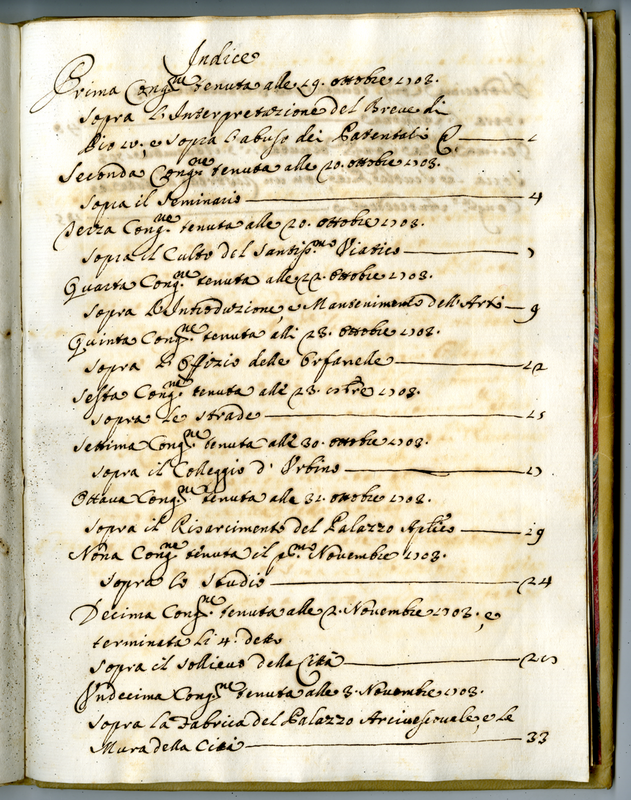 Indice
Prima Cong.ne tenuta alle 19. ottobre 1703.
sopra l'Interpretazione del Breve di
Pio IV, e sopra l'abuso dei Patentati &c. — 1
Seconda Cong.ne tenuta alle 20. ottobre 1703.
sopra il Seminario — 4
Terza Cong.ne tenuta alle 20. ottobre 1703.
sopra il Culto del Santiss.mo Viatico — 7
Quarta Cong.ne tenuta alle 22. ottobre 1703.
sopra l'Introduzione, e Mantenimento dell'Arti — 9
Quinta Cong.ne tenuta alli 23. ottobre 1703.
sopra l'Offizio delle Orfanelle — 12
Sesta Cong.ne tenuta alli 23. 1703.
sopra le strade — 15
Settima Cong.ne tenuta alli 30. ottobre 1703.
sopra il Colleggio d'Urbino — 17
Ottava Cong.ne tenuta alle 31. ottobre 1703.
sopra il Risarcimento del Palazzo Aplico — 19
Nona Cong.ne tenuta il p.mo Novembre 1703.
sopra lo studio — 24
Decima Cong.ne tenuta alle 2. Novembre 1703., e
terminata li 4. detto
sopra il sollievo della Città — 27
Undecima Cong.ne tenuta alle 8. Novembre 1703.
sopra la Fabrica del Palazzo Arcivescovale, e le
Mura della Città — 33